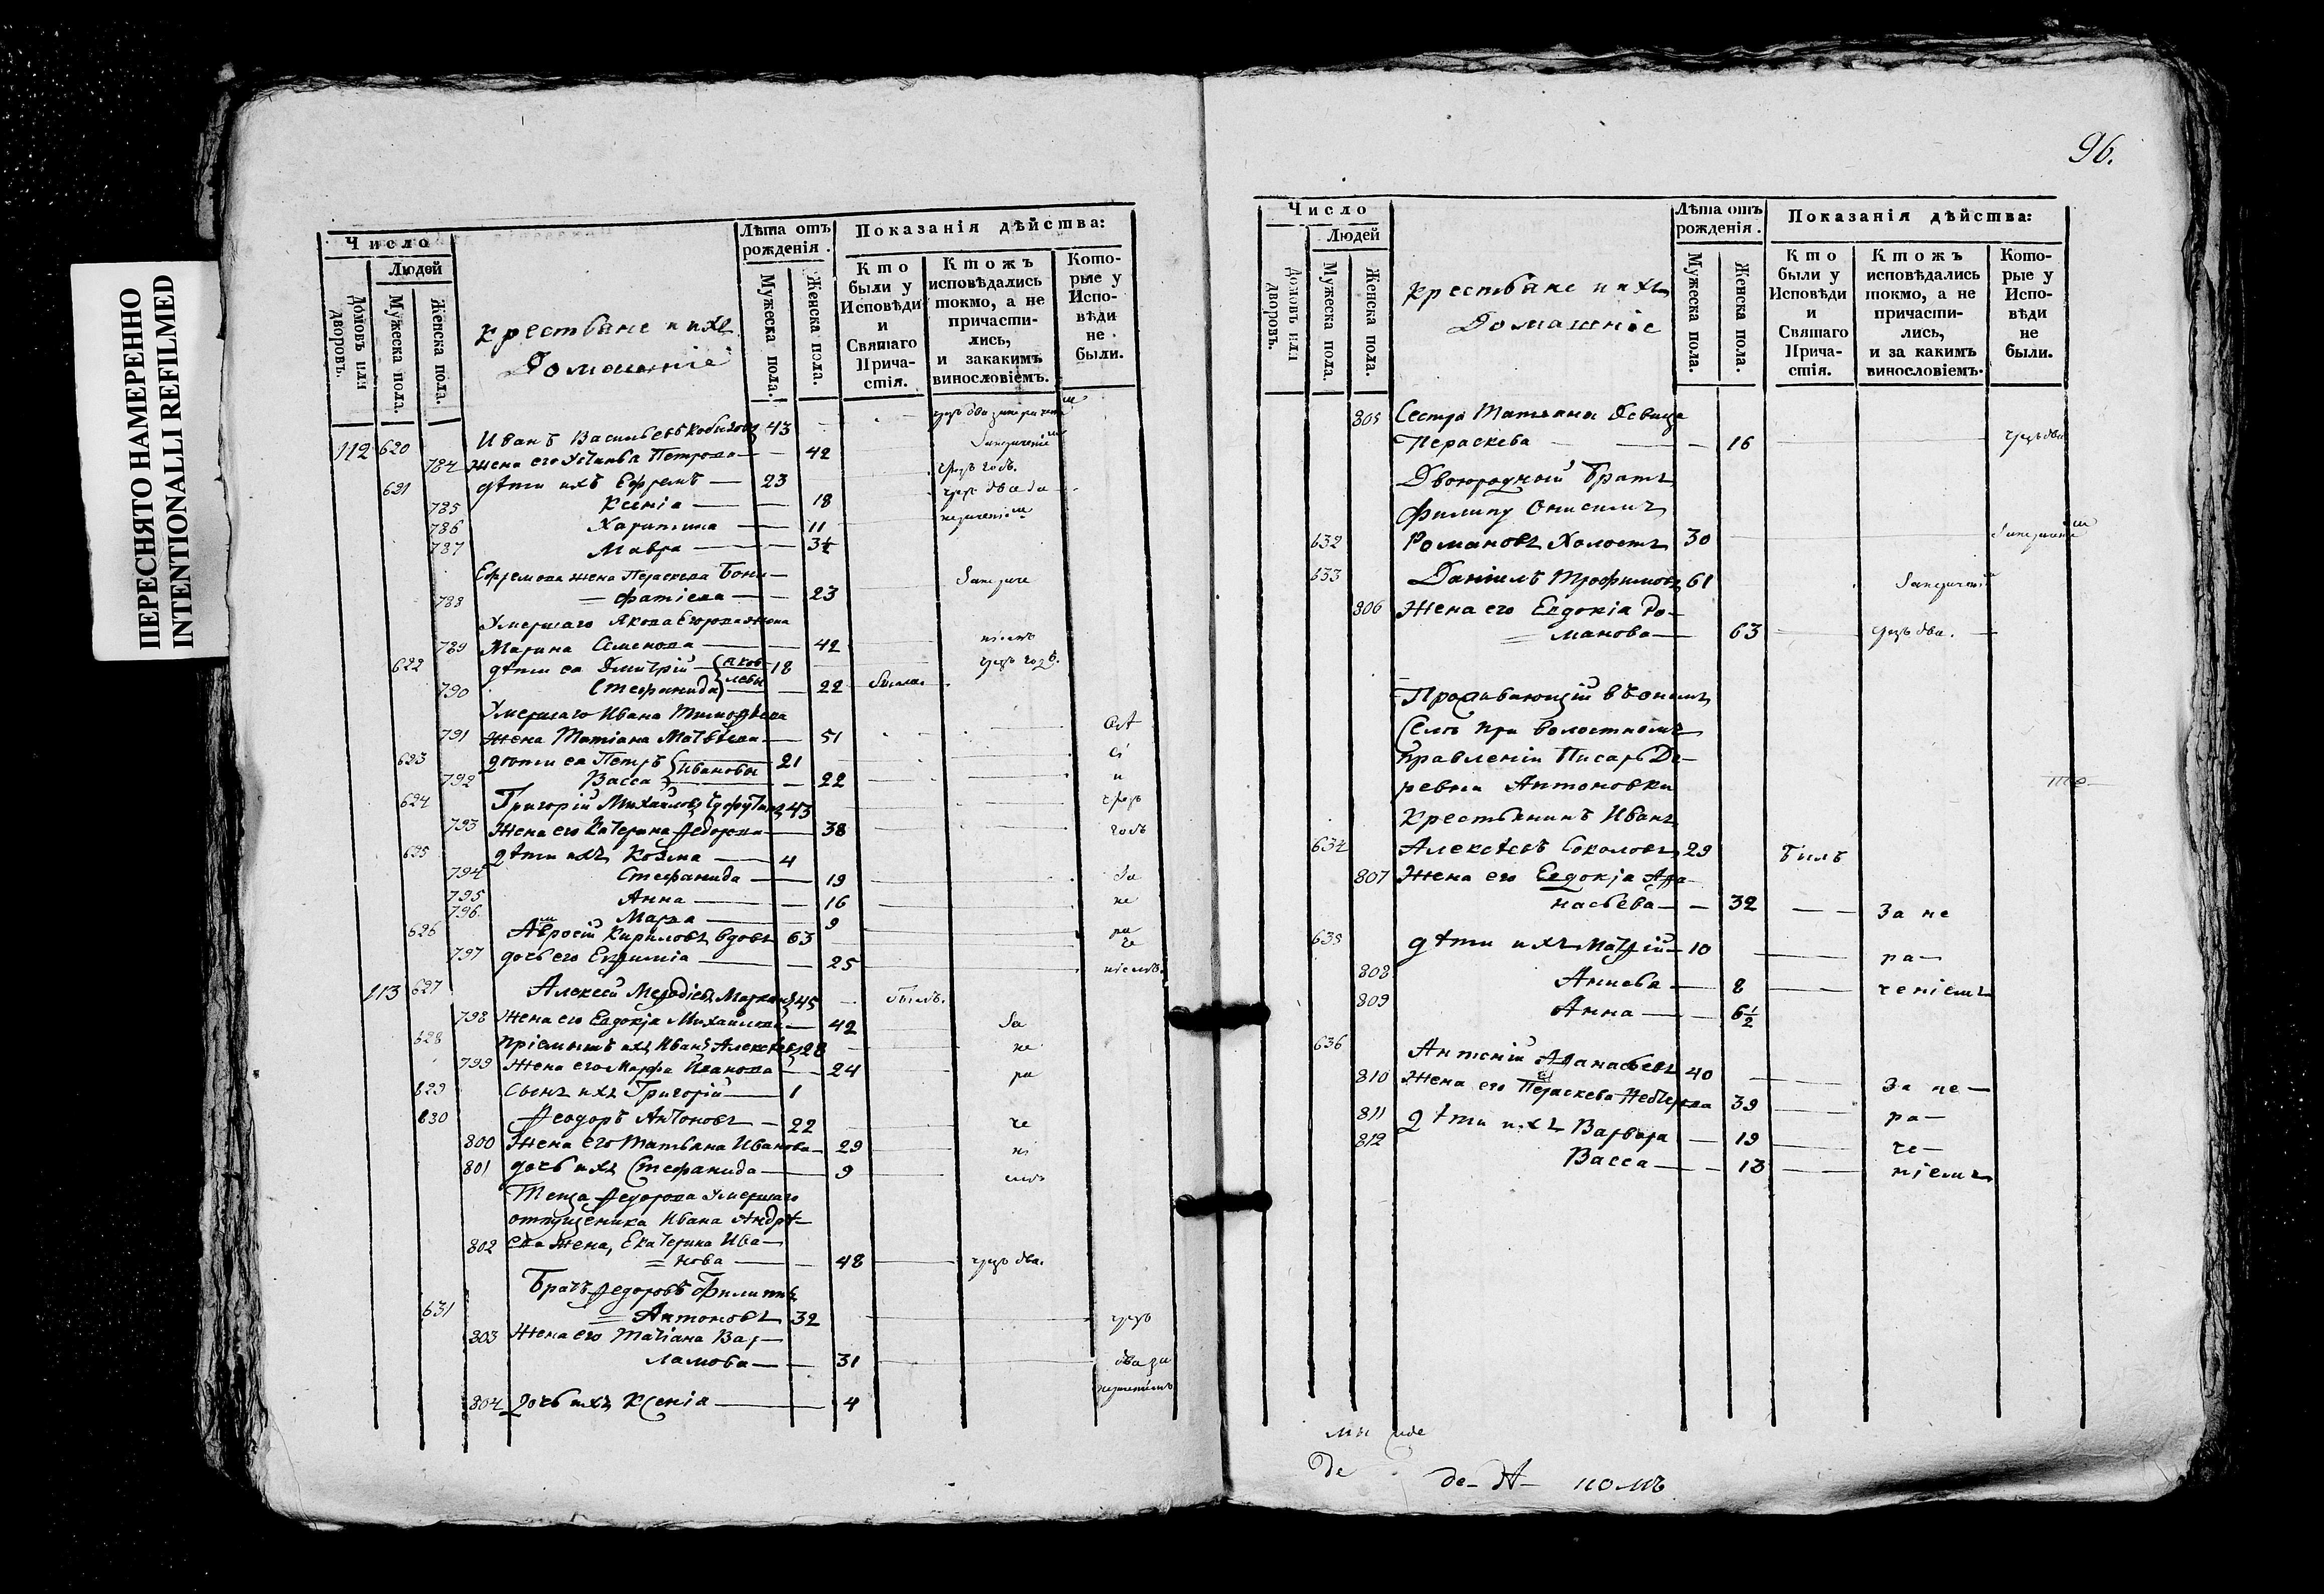 ПЕРЕСНЯТО НАМЕРЕННО
INTENTIONALLI REFILMED
Число
Людей
Домовъ или дворовъ.
Мужеска пола.
Женска пола.
крестьяне и ихъ
Домашніе
Лѣта отъ рожденія.
Мужеска пола.
Женска пола.
Показанія дѣйства:
Кто были у Исповѣди и Святаго Причастія.
Ктожъ исповѣдались токмо, а не причастились, и закакимъ винословіемъ.
Которые у Исповѣди не были.
112 620 Иванъ Васильевъ 43
784 жена его Устинья Петрова 42
621 дѣти ихъ Ефремъ 23 чрезъ годъ.
785 Ксенія 18
786 Харитина 11
787 Мавра 3½
Ефремова жена Пераскева Бони-
788 фатіева 23
Умершаго Якова Егорова жена
789 Марина Семенова 42 ніемъ
622 дѣти ея Дмитрій Яков- 18 чрезъ годъ.
790 Стефанида левы 22
Умершаго Ивана Тимофѣева
791 жена Татіана Матвѣева 51
623 дѣти ея Петръ Ивановы 21
792 Васса 22 и
624 Григорій Михайловъ 43 чрезъ
793 жена его Катерина Федорова 38 годъ
625 дѣти ихъ Козма 4
794 Стефанида 19 за
795 Анна 16 не
796 Марѳа 9
626 Амвросій Кириловъ вдовъ 63 ра
че
797 дочь его Евфимія 25 ніемъ.
113 627 Алексей Меѳодіевъ 45 былъ.
798 жена его Евдокія Михайлова 42 За
628 пріемышъ ихъ Иванъ Алексѣевъ 28 не
799 жена его Марфа Иванова 24 ра
629 сынъ ихъ Григорій 1
630 Ѳеодоръ Антоновъ 22 че
800 жена его Татьяна Иванова 29 ні
801 дочь ихъ Стефанида 9 емъ
Теща Федорова умершаго
отпущеника Ивана Андрѣ-
802 ева жена, Екатерина Ива-
нова 48 чрезъ два.
Братъ Федоровъ Филиппъ
631 Антоновъ 32 чрезъ
803 жена его Татіана Вар-
ламова 31 два за
804 дочь ихъ Ксенія 4
96.
Число
Людей
Домовъ или дворовъ.
Мужеска пола.
Женска пола.
крестьяне и ихъ
Домашніе
Лѣта отъ рожденія.
Мужеска пола.
Женска пола.
Показанія дѣйства:
Кто были у Исповѣди и Святаго Причастія.
Ктожъ исповѣдались токмо, а не причастились, и за какимъ винословіемъ.
Которые у Исповѣди не были.
805 Сестра Татьяны Девица
Пераскева 16 чрезъ два
Двоюродной братъ
Филипу Онисимъ
632 Романовъ Холостъ 30
633 Даніилъ Трофимовъ 61
806 жена его Евдокія Ро-
манова 63 чрезъ два.
Проживающій въ ономъ
Селѣ при волостномъ
правленіи Писарь Де-
ревни Антоновки
крестьянинъ Иванъ
634 Алексѣевъ Соколовъ 29 былъ
807 жена его Евдокія Аѳа-
насьева 32 За не
635 дѣти ихъ 10 ра-
808 8 ченіемъ
809 Анна 6½
636 Аѳанасьевъ 40 За не-
810 жена его Пераскева 39 ра-
811 дѣти ихъ Варвара 19 че-
812 Васса 13 ніемъ
де